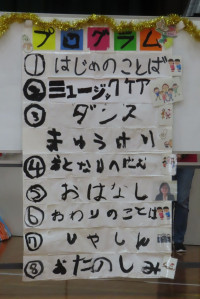 プログラム
①はじめのことば
②ミュージックケア
③ダンス
きゅうけい
④おとなりへどうぞ
⑤おはなし
⑥おわりのことば
⑦しゃしん
⑧おたのしみ